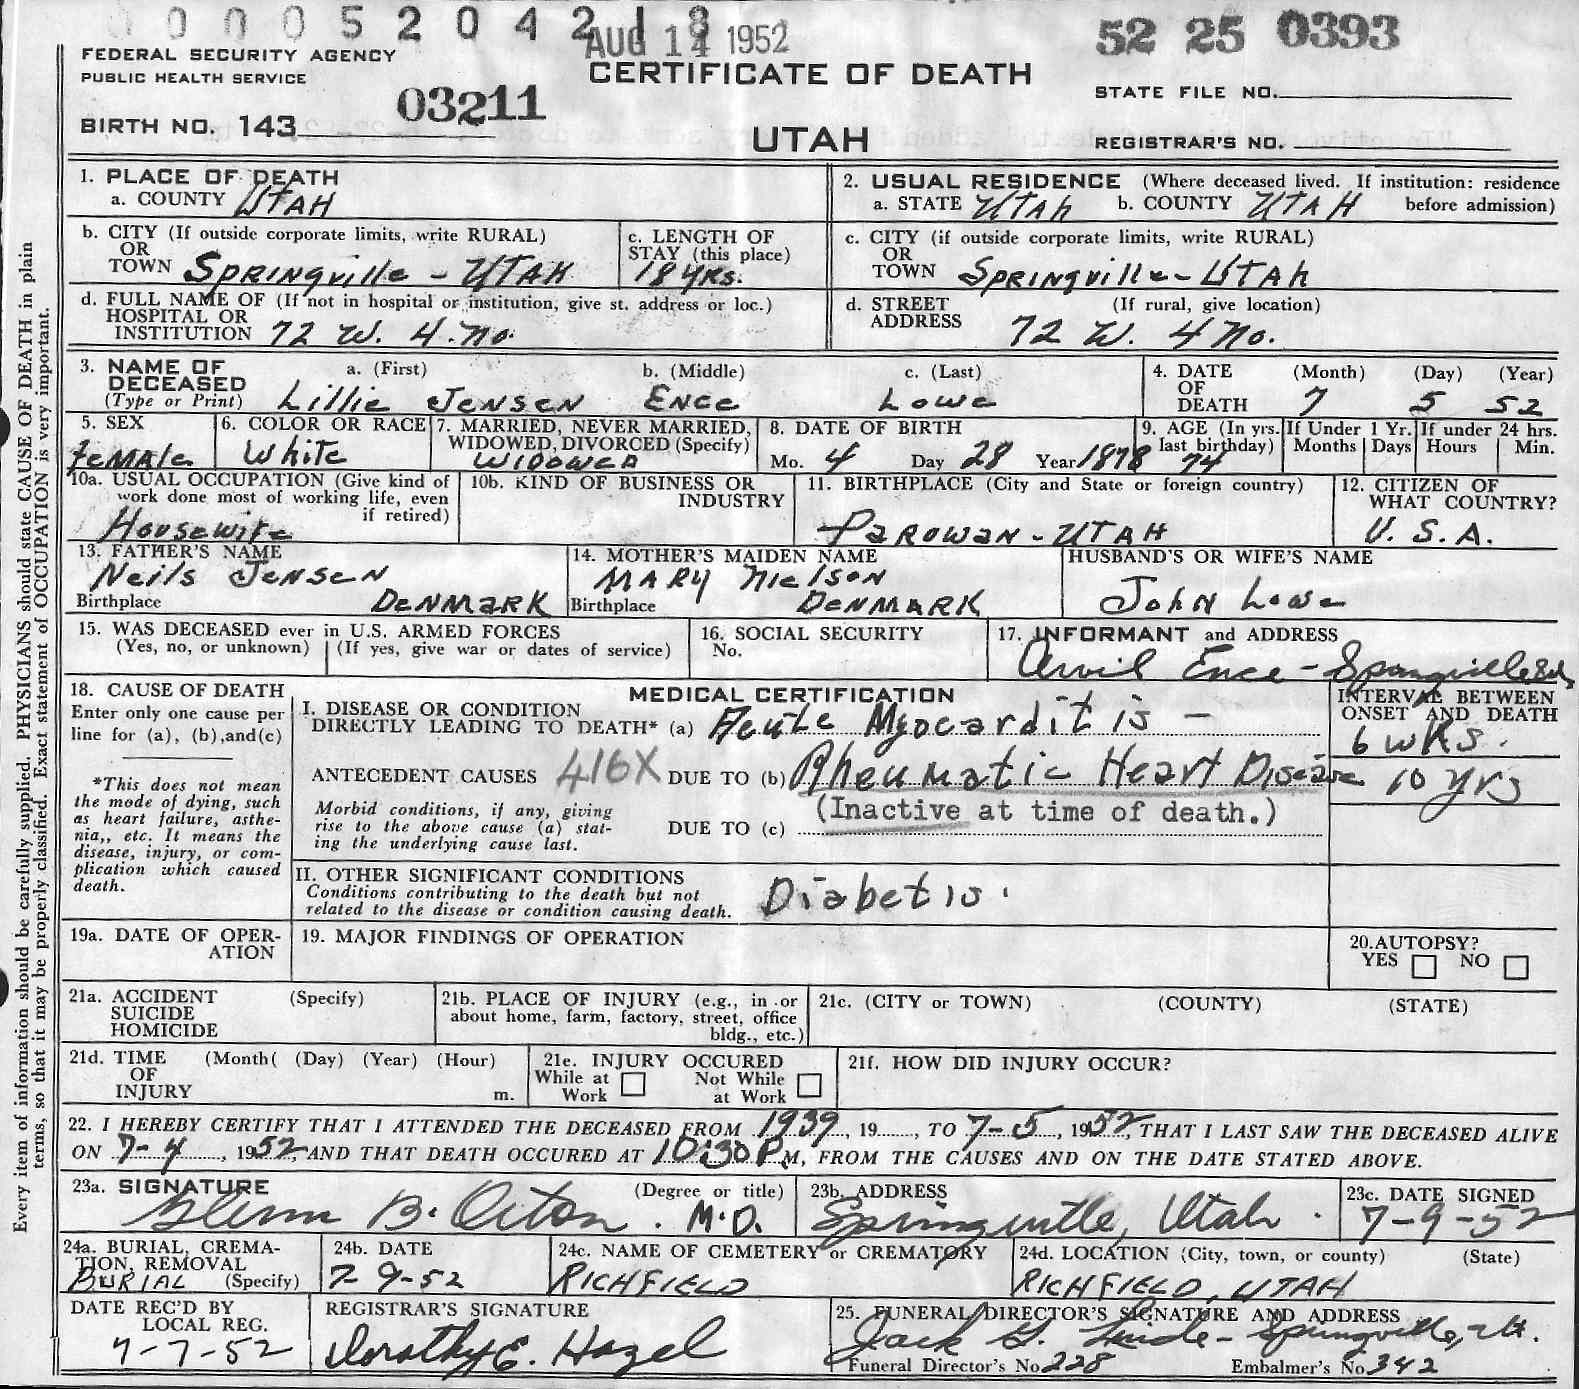 000520421 8
AUG 14 1952
52 25 0393
FEDERAL SECURITY AGENCY
PUBLIC HEALTH SERVICE
CERTIFICATE OF DEATH
STATE FILE NO.
03211
BIRTH NO. 143
UTAH
REGISTRAR'S NO.
1. PLACE OF DEATH
a. COUNTY UTAH
2. USUAL RESIDENCE (Where deceased lived. If institution: residence
a. STATE UTAH b. COUNTY UTAH before admission)
b. CITY (If outside corporate limits, write RURAL)
OR
TOWN SPRINGVILLE - UTAH
c. LENGTH OF
STAY (this place)
18 YRS.
c. CITY (if outside corporate limits, write RURAL)
OR
TOWN SPRINGVILLE - UTAH
d. FULL NAME OF (If not in hospital or institution, give st. address or loc.)
HOSPITAL OR
INSTITUTION 72 W. 4. No.
d. STREET (If rural, give location)
ADDRESS 72 W. 4 No.
3. NAME OF a. (First) b. (Middle) c. (Last)
DECEASED
(Type or Print) Lillie JENSEN ENCE Lowe
4. DATE (Month) (Day) (Year)
OF
DEATH 7 5 52
5. SEX
FEMALE
6. COLOR OR RACE
White
7. MARRIED, NEVER MARRIED,
WIDOWED, DIVORCED (Specify)
WIDOWED
8. DATE OF BIRTH
Mo. 4 Day 28 Year 1878
9. AGE (In yrs.
last birthday)
74
If Under 1 Yr.
Months Days
If under 24 hrs.
Hours Min.
10a. USUAL OCCUPATION (Give kind of
work done most of working life, even
if retired)
Housewife
10b. KIND OF BUSINESS OR
INDUSTRY
11. BIRTHPLACE (City and State or foreign country)
PAROWAN - UTAH
12. CITIZEN OF
WHAT COUNTRY?
U. S. A.
13. FATHER'S NAME
Neils JENSEN
Birthplace DENMARK
14. MOTHER'S MAIDEN NAME
MARY Nielson
Birthplace DENMARK
HUSBAND'S OR WIFE'S NAME
John Lowe
15. WAS DECEASED ever in U.S. ARMED FORCES
(Yes, no, or unknown) (If yes, give war or dates of service)
16. SOCIAL SECURITY
No.
17. INFORMANT and ADDRESS
Arvil Ence - Springville
18. CAUSE OF DEATH
Enter only one cause per
line for (a), (b), and (c)
*This does not mean
the mode of dying, such
as heart failure, asthe-
nia,, etc. It means the
disease, injury, or com-
plication which caused
death.
MEDICAL CERTIFICATION
I. DISEASE OR CONDITION
DIRECTLY LEADING TO DEATH* (a) Acute Myocarditis -
ANTECEDENT CAUSES 416X DUE TO (b) Rheumatic Heart Disease
(Inactive at time of death.)
Morbid conditions, if any, giving
rise to the above cause (a) stat-
ing the underlying cause last.
DUE TO (c)
INTERVAL BETWEEN
ONSET AND DEATH
6 wks.
10 yrs
II. OTHER SIGNIFICANT CONDITIONS
Conditions contributing to the death but not
related to the disease or condition causing death.
Diabetis.
19a. DATE OF OPER-
ATION
19. MAJOR FINDINGS OF OPERATION
20. AUTOPSY?
YES NO
21a. ACCIDENT (Specify)
SUICIDE
HOMICIDE
21b. PLACE OF INJURY (e.g., in or
about home, farm, factory, street, office
bldg., etc.)
21c. (CITY or TOWN) (COUNTY) (STATE)
21d. TIME (Month( (Day) (Year) (Hour)
OF
INJURY m.
21e. INJURY OCCURED
While at Work Not While at Work
21f. HOW DID INJURY OCCUR?
22. I HEREBY CERTIFY THAT I ATTENDED THE DECEASED FROM 1939, 19....., TO 7-5, 1952, THAT I LAST SAW THE DECEASED ALIVE
ON 7-4, 1952, AND THAT DEATH OCCURED AT 10:30 P.M, FROM THE CAUSES AND ON THE DATE STATED ABOVE.
23a. SIGNATURE (Degree or title)
Glenn B. Orton. M.D.
23b. ADDRESS
Springville, Utah.
23c. DATE SIGNED
7-9-52
24a. BURIAL, CREMA-
TION, REMOVAL
BURIAL (Specify)
24b. DATE
7-9-52
24c. NAME OF CEMETERY or CREMATORY
RICHFIELD
24d. LOCATION (City, town, or county) (State)
RICHFIELD, UTAH
DATE REC'D BY
LOCAL REG.
7-7-52
REGISTRAR'S SIGNATURE
Dorothy E. Hazel
25. FUNERAL DIRECTOR'S SIGNATURE AND ADDRESS
Jack G. - Springville, Ut.
Funeral Director's No. 228 Embalmer's No. 342
Every item of information should be carefully supplied. PHYSICIANS should state CAUSE OF DEATH in plain
terms, so that it may be properly classified. Exact statement of OCCUPATION is very important.